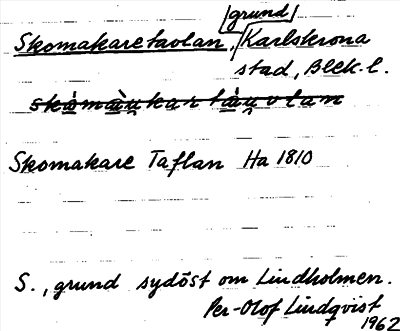 grund
Skomakaretavlan, Karlskrona
stad, Blek. l.
Skomakare Taflan Ha 1810
S., grund sydöst om Lindholmen.
Per-Olof Lindqvist
1962